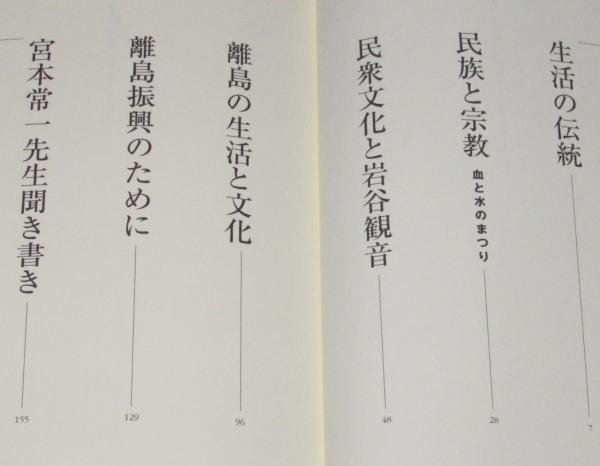 生活の伝統
7
民族と宗教 血と水のまつり
28
民衆文化と岩谷観音
48
離島の生活と文化
96
離島振興のために
129
宮本常一先生聞き書き
155